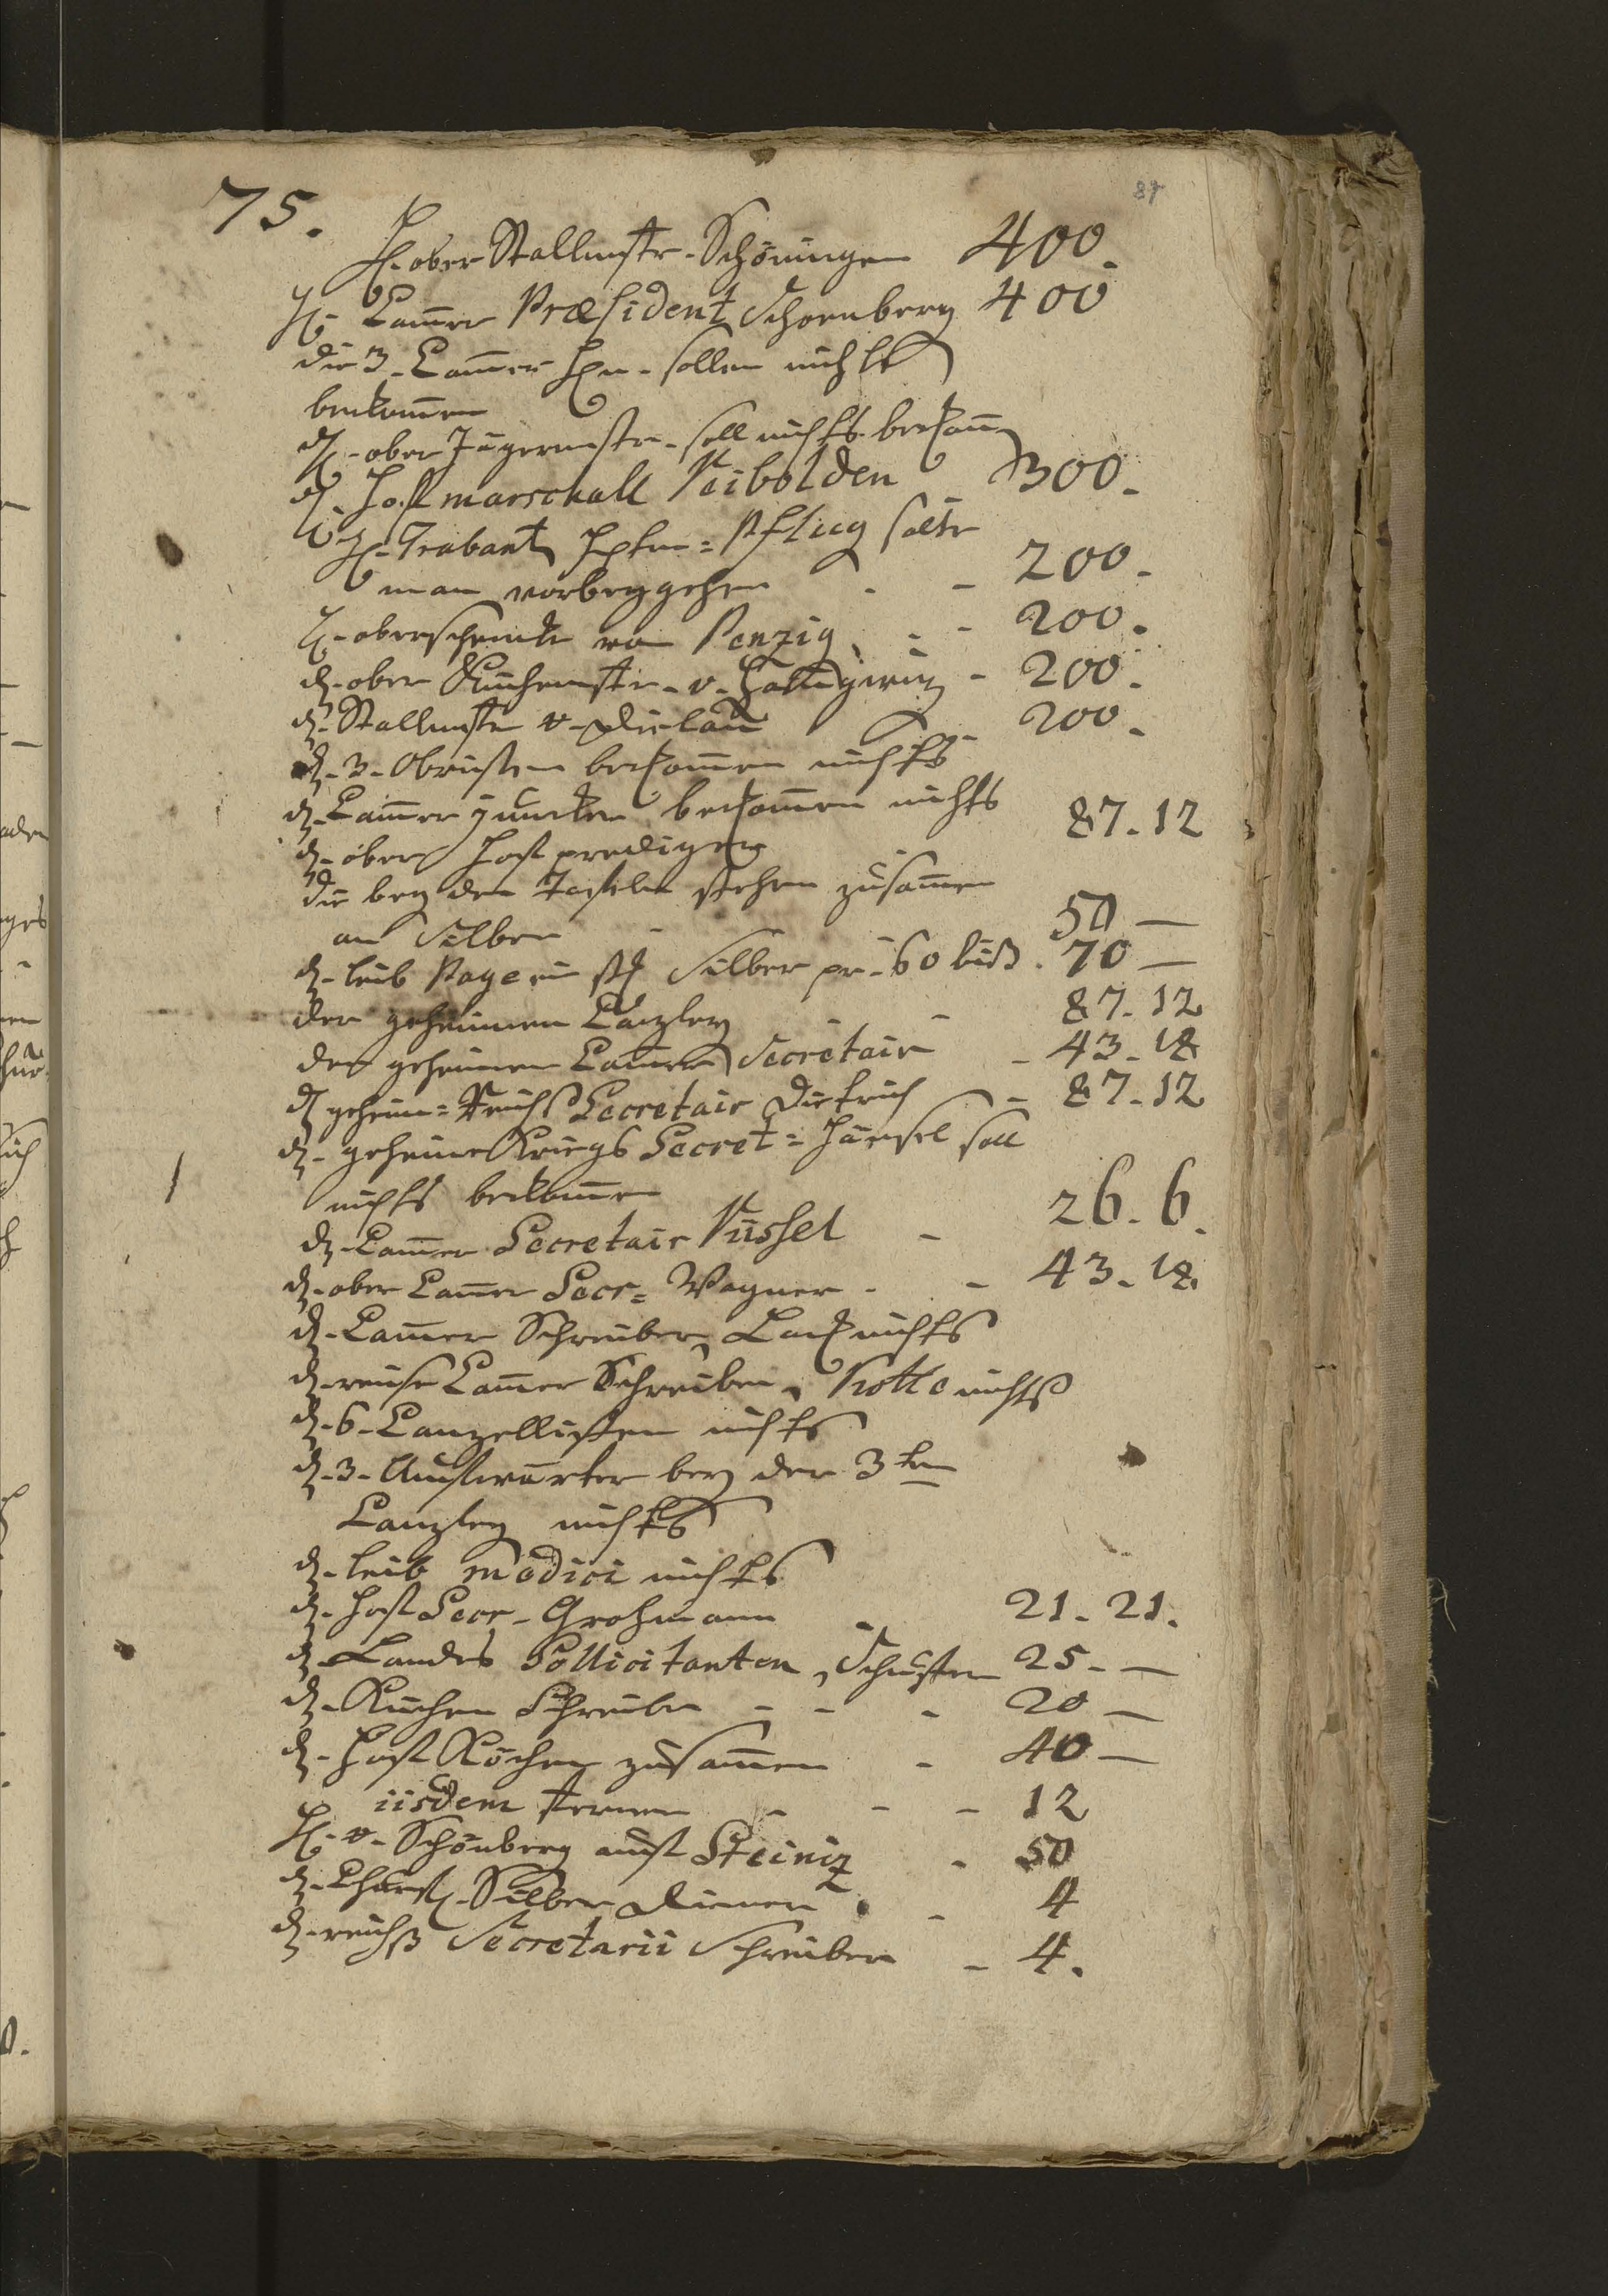 75.
87
H. ober Stallmstr. Schöningen 400.
H. Cam̄er Præsident Schoenberg 400
die 3. Cam̄er Hrn. sollen nichts
bekom̄en
H. ober Jägermstr. soll nichts bekom̄
H. Hoffmarschall Reibolden 300.
H. Trabant Hptm = Pflug solte
man vorbeygehen - - 200.
H. oberschenke von Penzig - - 200.
d. ober Kuchenmstr. v. - 200.
d. Stallmstr v. Dielau - 200.
d. 3. Obristen bekom̄en nichts
d. Cam̄er juncker bekom̄en nichts
d. ober Hoff prediger 87. 12
die bey den Tafeln stehen zusam̄en
an Silber - 50 —
d. leib Page ein stk Silber pr. 60 biß. 70 —
der geheimen Canzley - 87. 12
der geheimen Cam̄er Secretair - 43. 18
d geheim = Reichs Secretair Dietrich - 87. 12
d. geheime Kriegs Secret = Hänsel soll
nichts bekom̄en
d. Cam̄er Secretair Nüssel - 26. 6.
d. ober Cam̄er Secr = Wagner - - 43. 18.
d. Cam̄er Schreiber, nichts
d. reise Cam̄er Schreiber, Nolte nichts
d. 6. Canzellisten nichts
d. 3. Auffwärter bey der 3ten
Canzley nichts
d. leib medici nichts
d. Hoff Secr. Grohmann - 21. 21.
d. Landes Sollicitanten, Schuster 25. —
d. Kuchen Schreiber - - - 20 —
d. Hoff Köchen zusam̄en - 40 —
iisdem ferner - - - 12
H. v. Schönberg auff Steiniz - 50
d. Churf. Silber Diener - 4
d. reichß Secretarii Schreiber - 4.